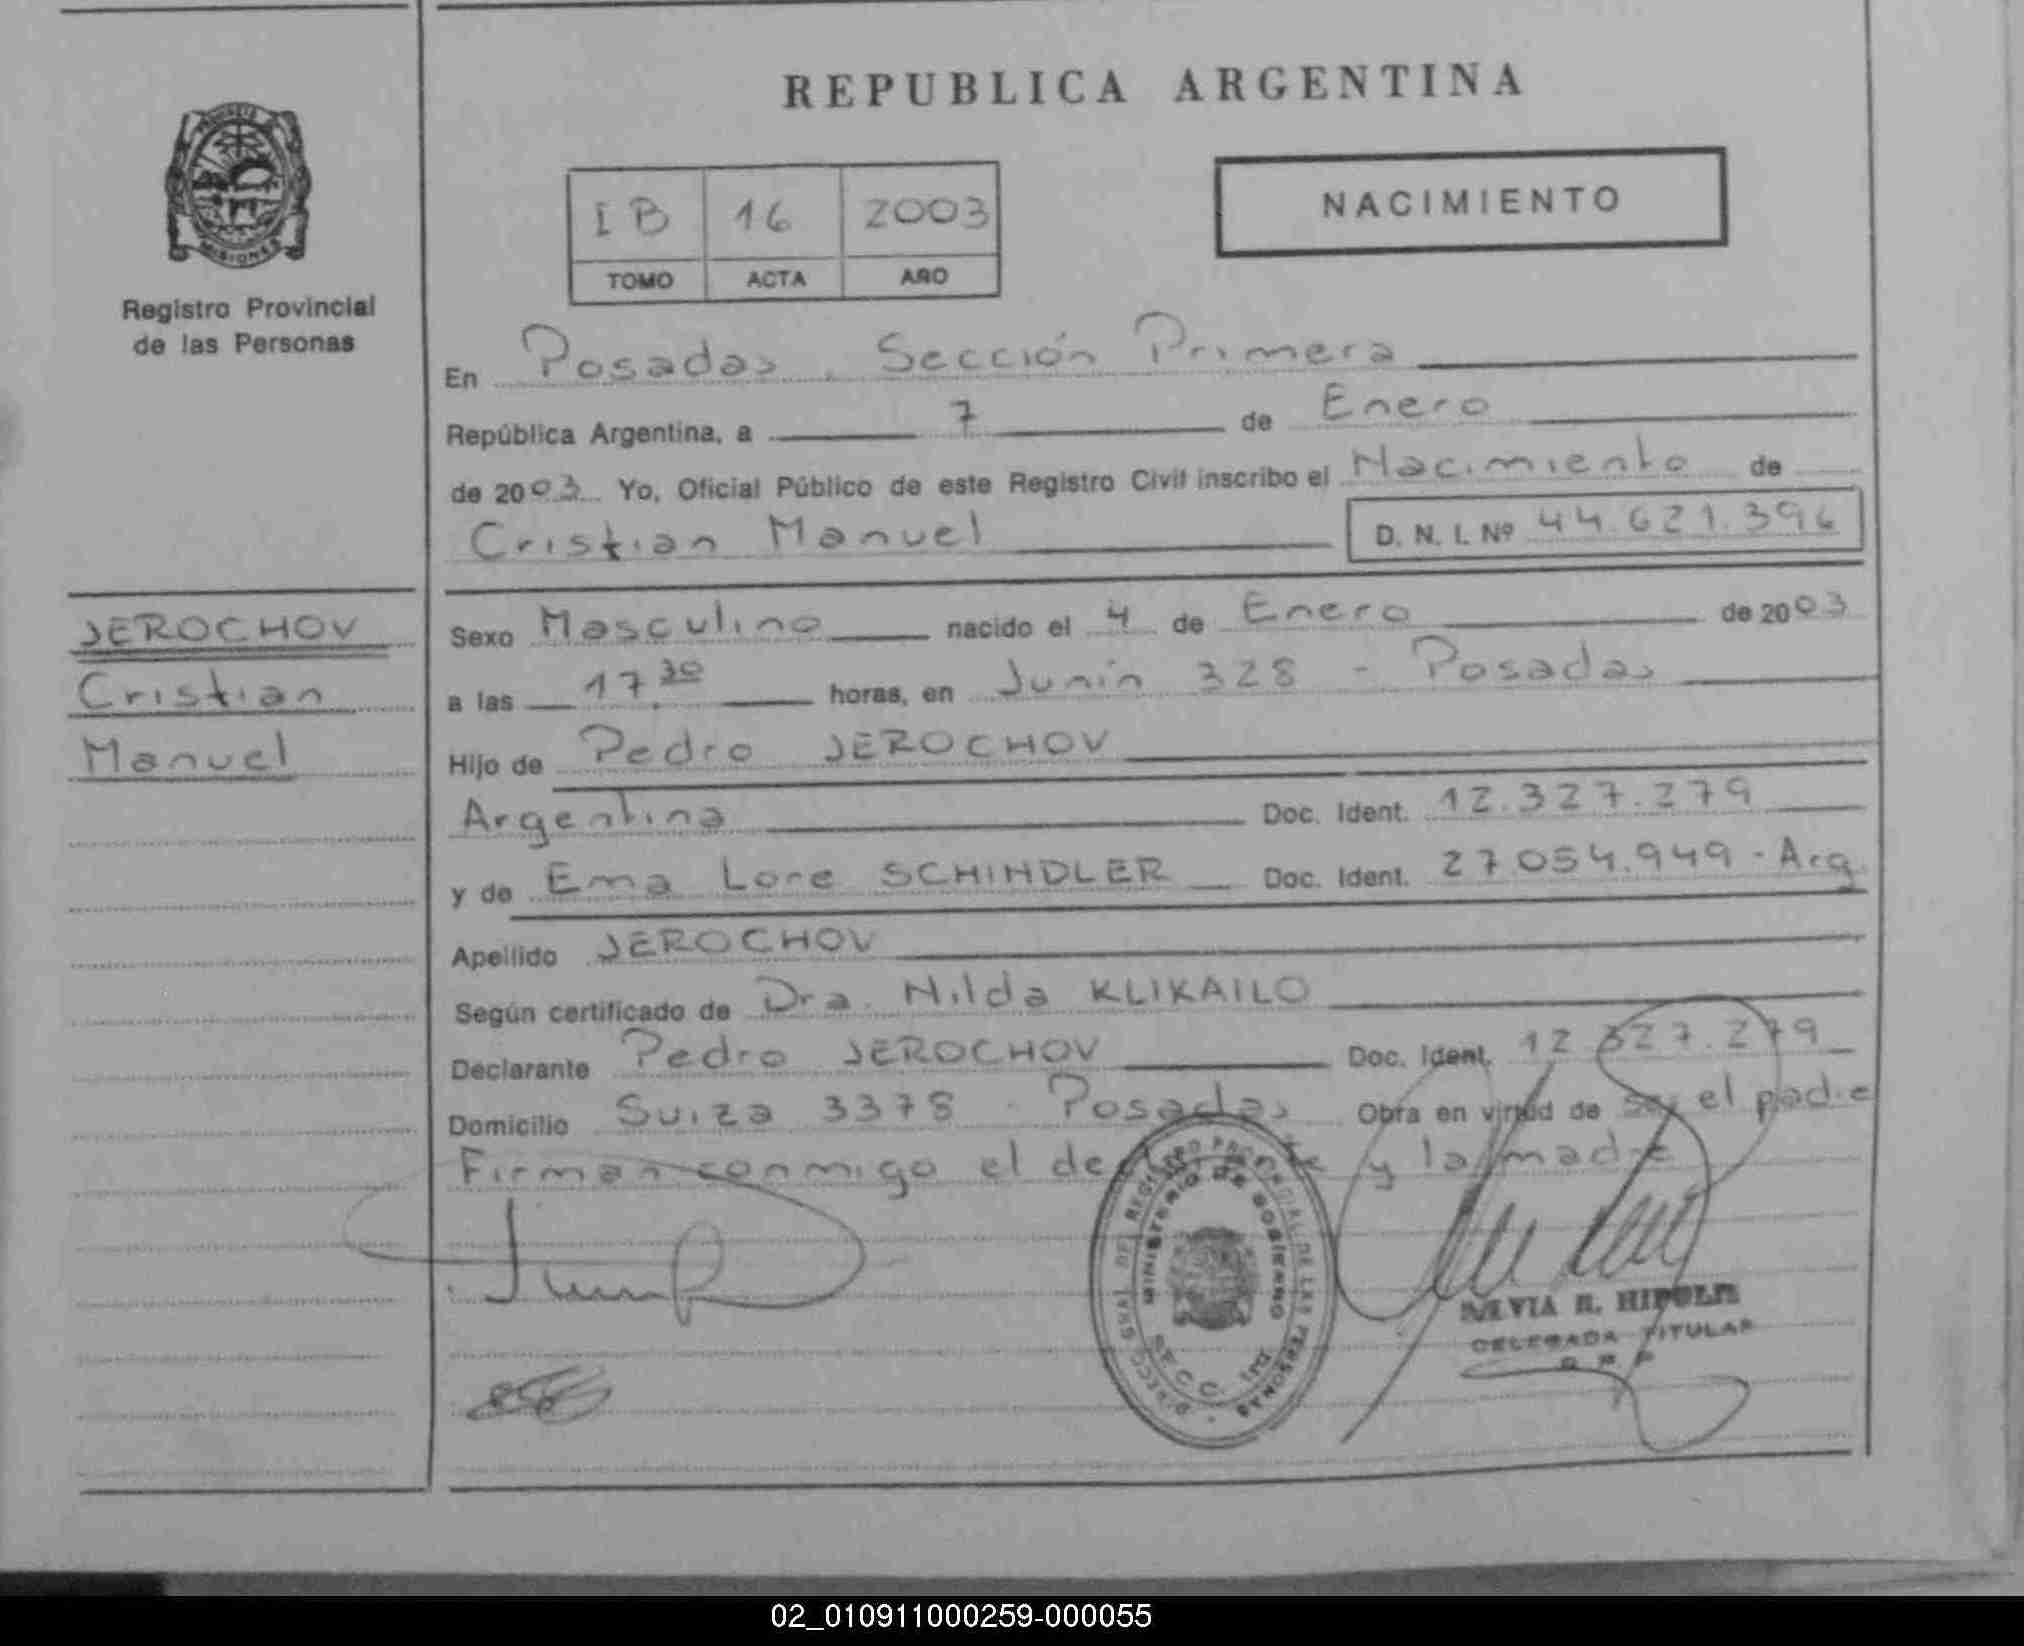 REPUBLICA ARGENTINA
PROVINCIA DE MISIONES
Registro Provincial
de las Personas
NACIMIENTO
IB 16 2003
TOMO ACTA AÑO
En Posadas, Sección Primera
República Argentina, a 7 de Enero
de 2003 Yo, Oficial Público de este Registro Civil inscribo el Nacimiento de
Cristian Manuel D. N. I. Nº 44.621.396
JEROCHOV
Cristian
Manuel
Sexo Masculino nacido el 4 de Enero de 2003
a las 17.30 horas, en Junín 328 - Posadas
Hijo de Pedro JEROCHOV
Argentina Doc. Ident. 12.327.279
y de Ema Lore SCHINDLER Doc. Ident. 27.054.949 - Arg.
Apellido JEROCHOV
Según certificado de Dra. Nilda KLIKAILO
Declarante Pedro JEROCHOV Doc. Ident. 12.327.279
Domicilio Suiza 3378 - Posadas Obra en virtud de ser el padre
Firman conmigo el y la madre
DIRECC. GRAL. DE REGISTRO PROVINCIAL DE LAS PERSONAS
MINISTERIO DE GOBIERNO
SECC.
DELEGADA TITULAR
02_010911000259-000055